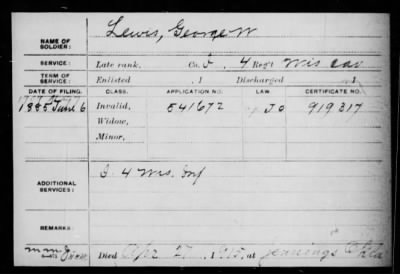 NAME OF SOLDIER: Lewis, George W
SERVICE: Late rank, Co. I, 4 Reg't Wis Cav
TERM OF SERVICE: Enlisted , 1 Discharged , 1
DATE OF FILING. CLASS. APPLICATION NO. LAW. CERTIFICATE NO.
1885 June 6 Invalid, 541672 919317
Widow,
Minor,
ADDITIONAL SERVICES: I. 4 Wis. Inf
REMARKS:
Died Apr 27, 1915, at Jennings Okla